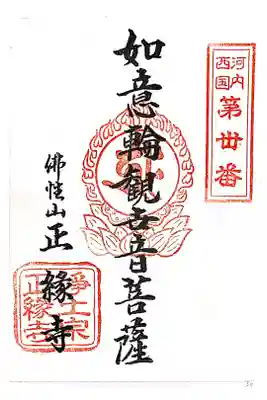 河内
西国
第卅番
如意輪観世音菩薩
佛性山
正縁寺
淨土宗
正縁寺